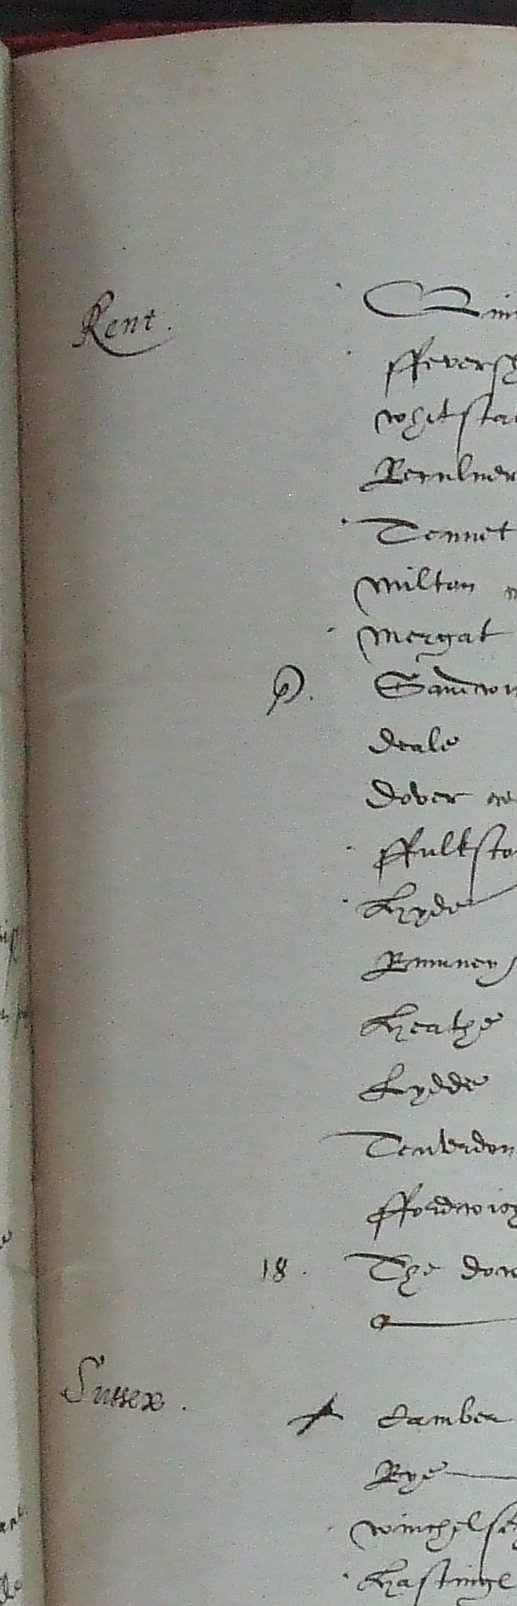 Kent.
ffeversh
whitsta
Tennet
Milton
Mergat
Sandwi
deale
dover
ffulksto
hyde
Rumney
heathe
Lydde
Tenterden
ffordwich
18. The dow
Sussex.
Camber
Rye
winchelse
hastinge